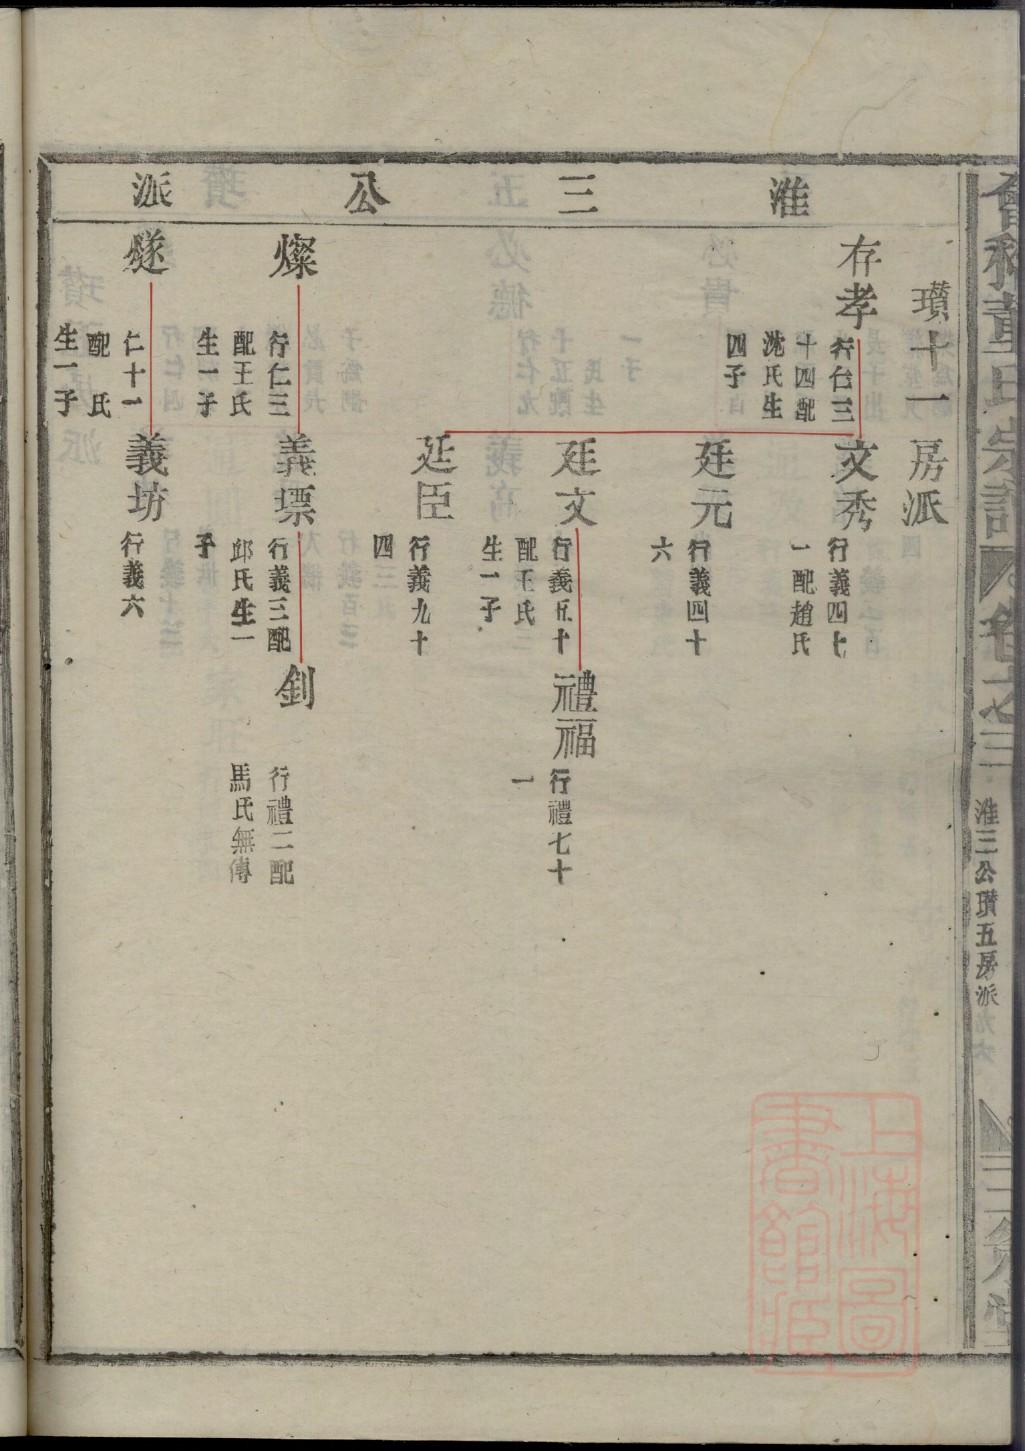 淮三公派
瓚十一房派
存孝
行仁三
十四配
沈氏生
四子
文秀
行義四七
一配趙氏
廷元
行義四十
六
廷文
行義五十
配王氏
生一子
禮福
行禮七十
一
廷臣
行義九十
四
燦
行仁三
配王氏
生一子
義
行義三配
邱氏生一
子
釗
行禮二配
馬氏無傳
燧
仁十一
配　氏
生一子
義坊
行義六
董氏宗譜
卷之三
淮三公瓚五房派
上海圖書館藏